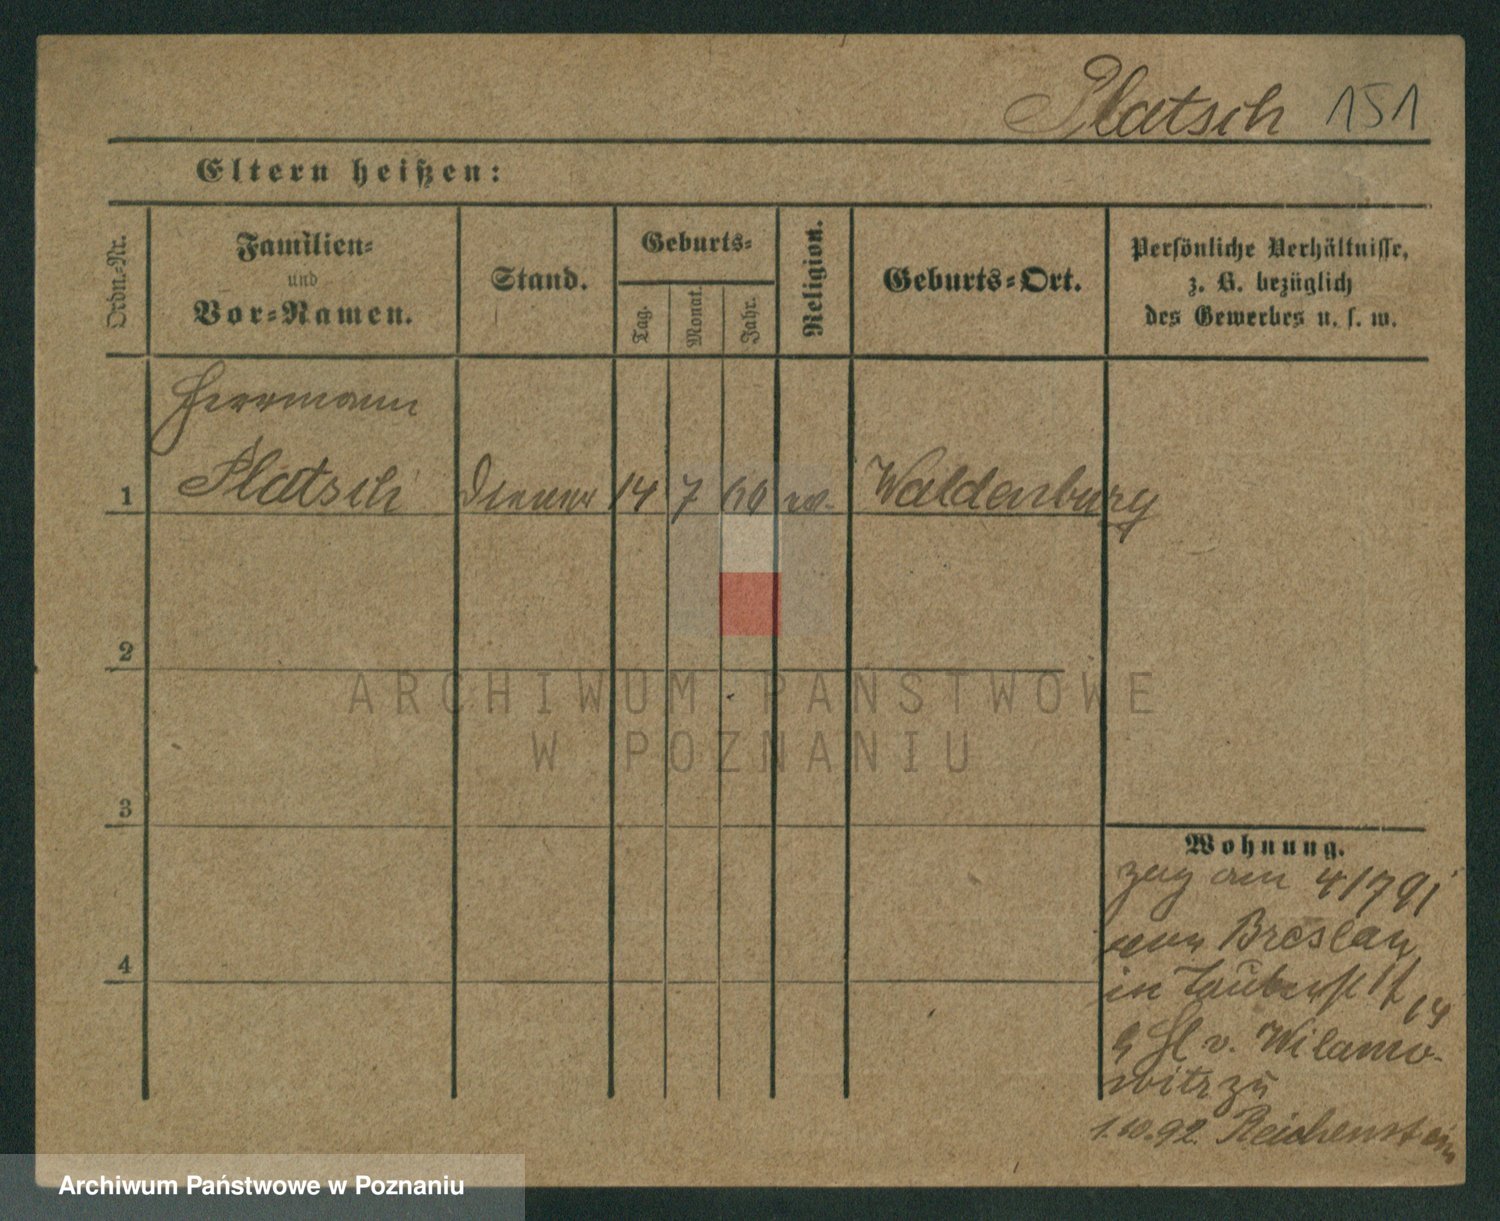 Platsch 151
Eltern heißen:
Ordn.-Nr.
Familien-
und
Vor-Namen.
Stand.
Geburts-
Tag.
Monat.
Jahr.
Religion.
Geburts-Ort.
Persönliche Verhältnisse,
z. B. bezüglich
des Gewerbes u. s. w.
Herrmann
1 Platsch Diener 14 7 Waldenburg
2
3
4
ARCHIWUM PAŃSTWOWE
W POZNANIU
Wohnung.
zug am 4/7 91
von Breslau
in
v. Wilamo-
witz zu
1.10.92 Reichenstein
Archiwum Państwowe w Poznaniu